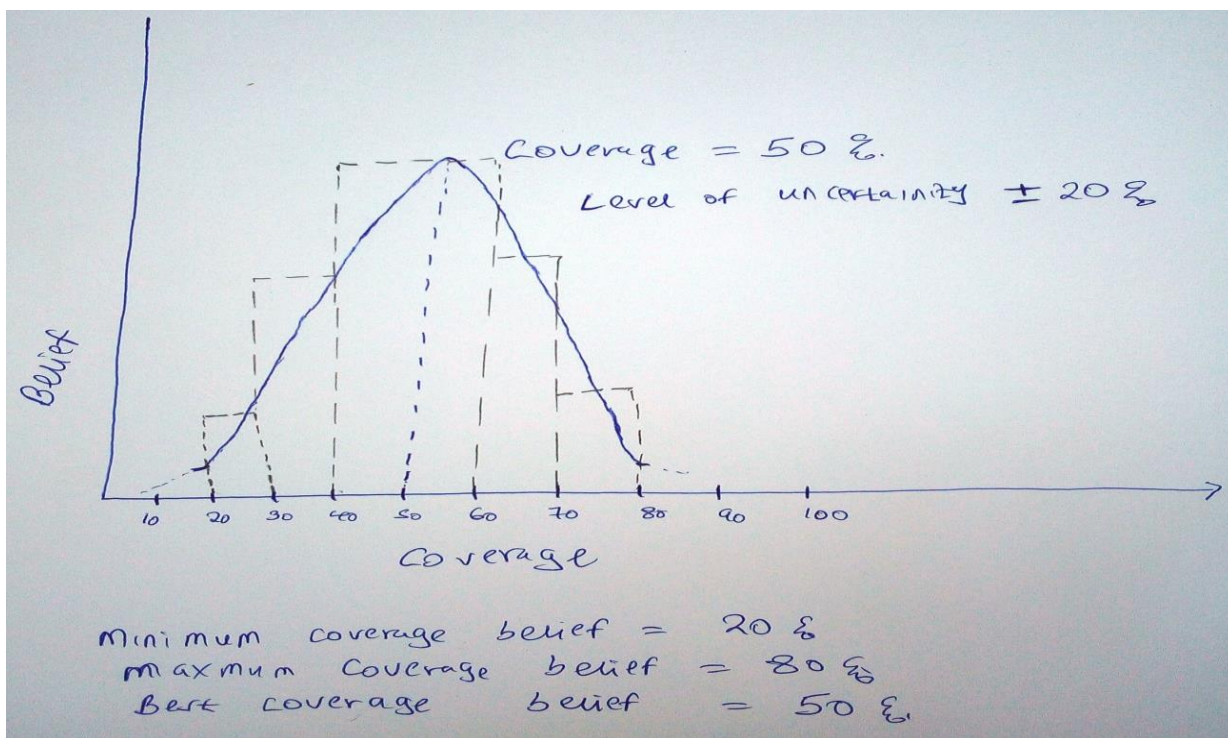 Coverage = 50 %.
Level of uncertainity ± 20 %
Belief
10 20 30 40 50 60 70 80 90 100
Coverage
Minimum coverage belief = 20 %
maxmum coverage belief = 80 %
Best coverage belief = 50 %.